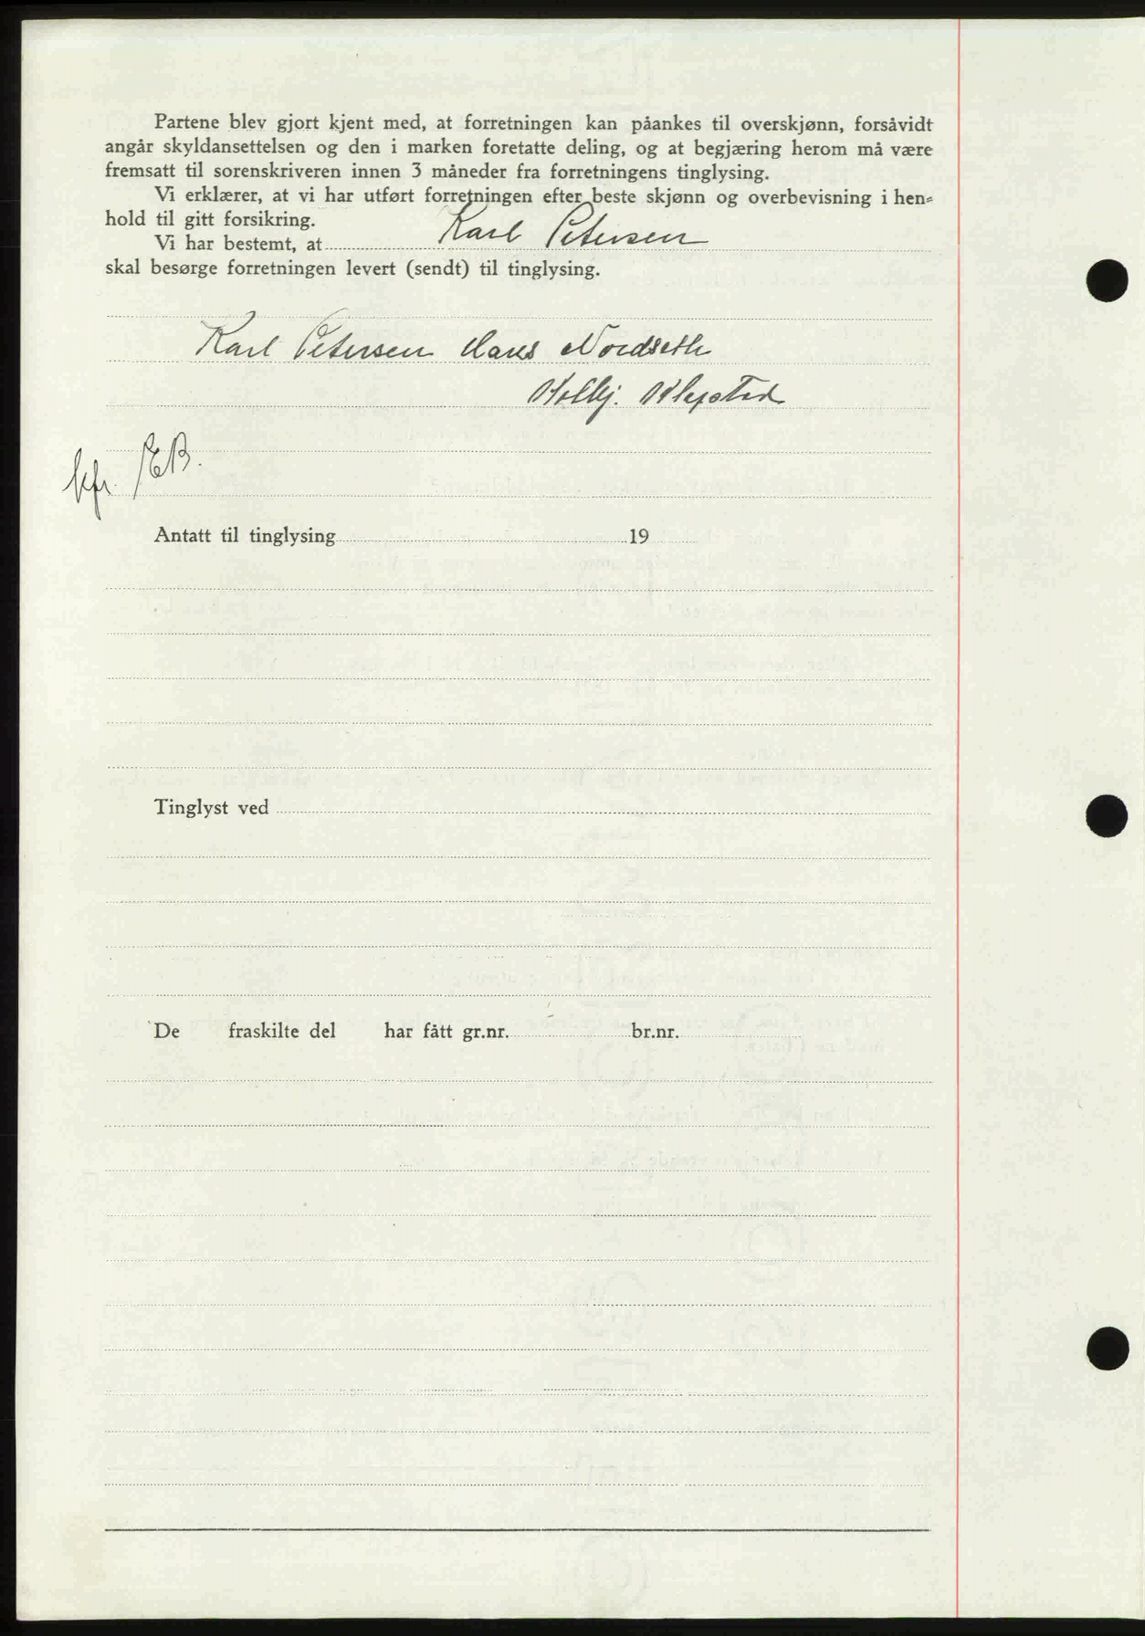 Partene blev gjort kjent med, at forretningen kan påankes til overskjønn, forsåvidt
angår skyldansettelsen og den i marken foretatte deling, og at begjæring herom må være
fremsatt til sorenskriveren innen 3 måneder fra forretningens tinglysing.
Vi erklærer, at vi har utført forretningen efter beste skjønn og overbevisning i hen=
hold til gitt forsikring.
Vi har bestemt, at Karl Petersen
skal besørge forretningen levert (sendt) til tinglysing.
Karl Petersen Hans Nordseth
kfr. EB.
Antatt til tinglysing 19
Tinglyst ved
De fraskilte del har fått gr.nr. br.nr.